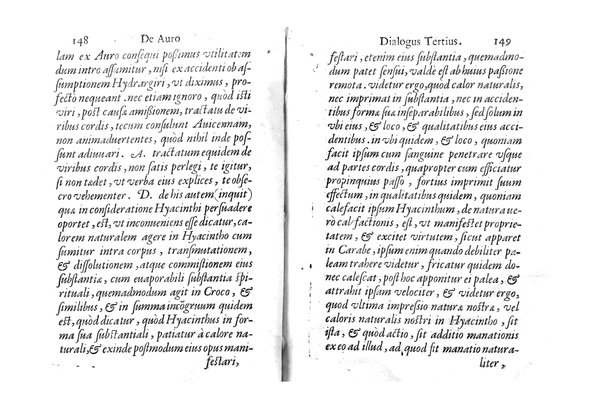 148 De Auro
lam ex Auro consequi possimus vtilitatem
dum intro assumitur, nisi ex accidenti ob as-
sumptionem Hydrargiri, vt diximus, pro-
fectò nequeant. nec etiam ignoro, quòd isti
viri, post causæ amissionem, tractatu de vi-
ribus cordis, tecum consulunt Auicennam,
non animaduertentes, quòd nihil inde pos-
sunt adiuuari. A. tractatum equidem de
viribus cordis, non satis perlegi, te igitur,
si non tædet, vt verba eius explices, te obse-
cro vehementer. D. de his autem (inquit)
qua in consideratione Hyacinthi persuadere
oportet, est, vt inconueniens esse dicatur, ca-
lorem naturalem agere in Hyacintho cum
sumitur intra corpus, transmutationem,
& dissolutionem, atque commistionem eius
substantia, cum euaporabili substantia spi-
rituali, quemadmodum agit in Croco, &
similibus, & in summa incōgruum quidem
est, quòd dicatur, quòd Hyacinthus in for-
ma sua substantiali, patiatur à calore na-
turali, & exinde postmodum eius opus mani-
festari,
Dialogus Tertius. 149
festari, etenim eius substantia, quemadmo-
dum patet sensui, valde est ab huius passione
remota. videtur ergo, quod calor naturalis,
nec imprimat in substantia, nec in acciden-
tibus forma sua inseparabilibus, sed solum in
vbi eius, & loco, & qualitatibus eius acci-
dentibus. in vbi quidem, & loco, quoniam
facit ipsum cum sanguine penetrare vsque
ad partes cordis, quapropter cum efficiatur
propinquius passo, fortius imprimit suum
effectum, in qualitatibus quidem, quoniam
calefacit ipsum Hyacinthum, de natura ve-
rò calefactionis, est, vt manifestet proprie-
tatem, & excitet virtutem, sicut apparet
in Carabe, ipsum enim quando debiliter pa-
leam trahere videtur, fricatur quidem do-
nec calescat, post hoc apponitur ei palea, &
attrahit ipsam velociter, & videtur ergo,
quod vltima impressio natura nostra, vel
caloris naturalis nostri in Hyacintho, sit
ista, & quòd actio, sit additio manationis
ex eo ad illud, ad quod sit manatio natura-
liter,